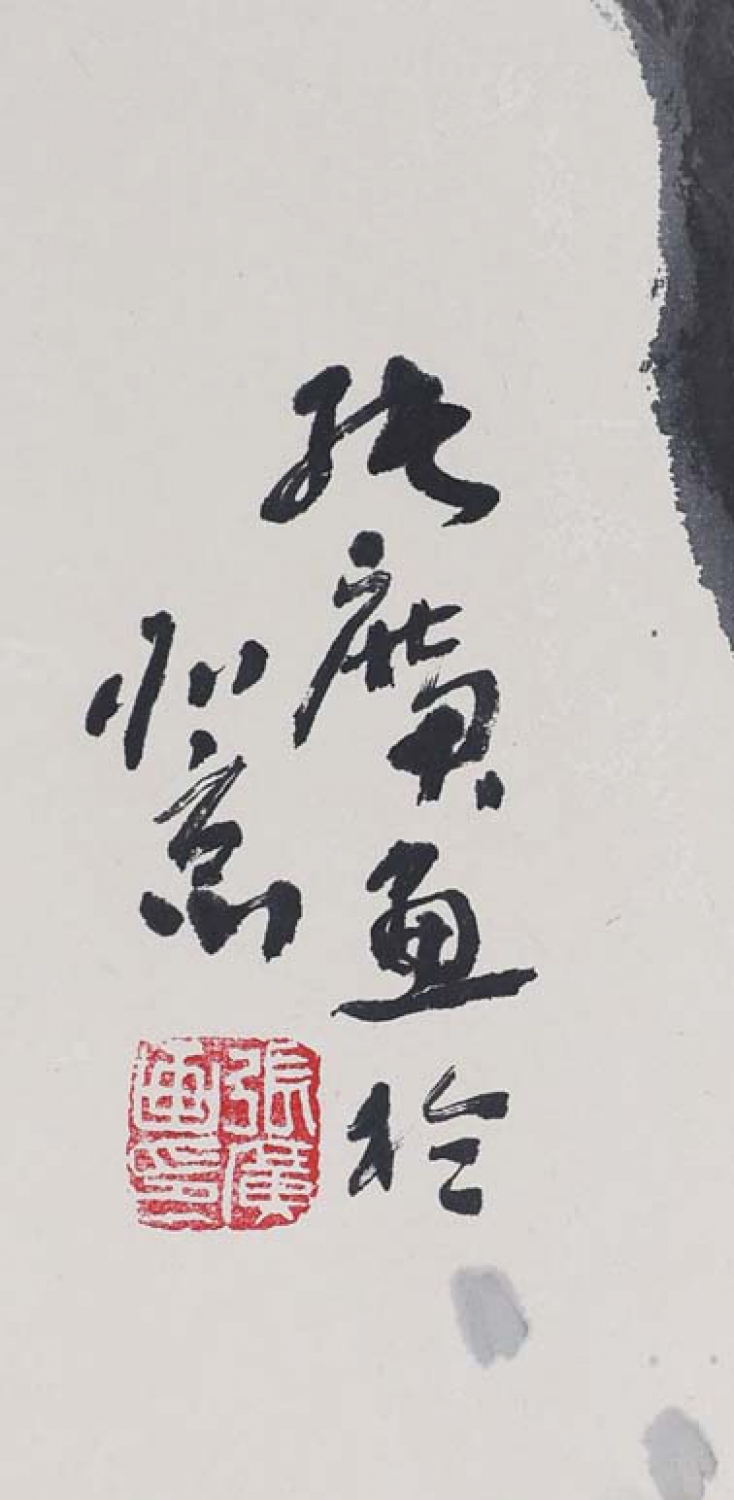 張廣畫於
北京
張廣
画印